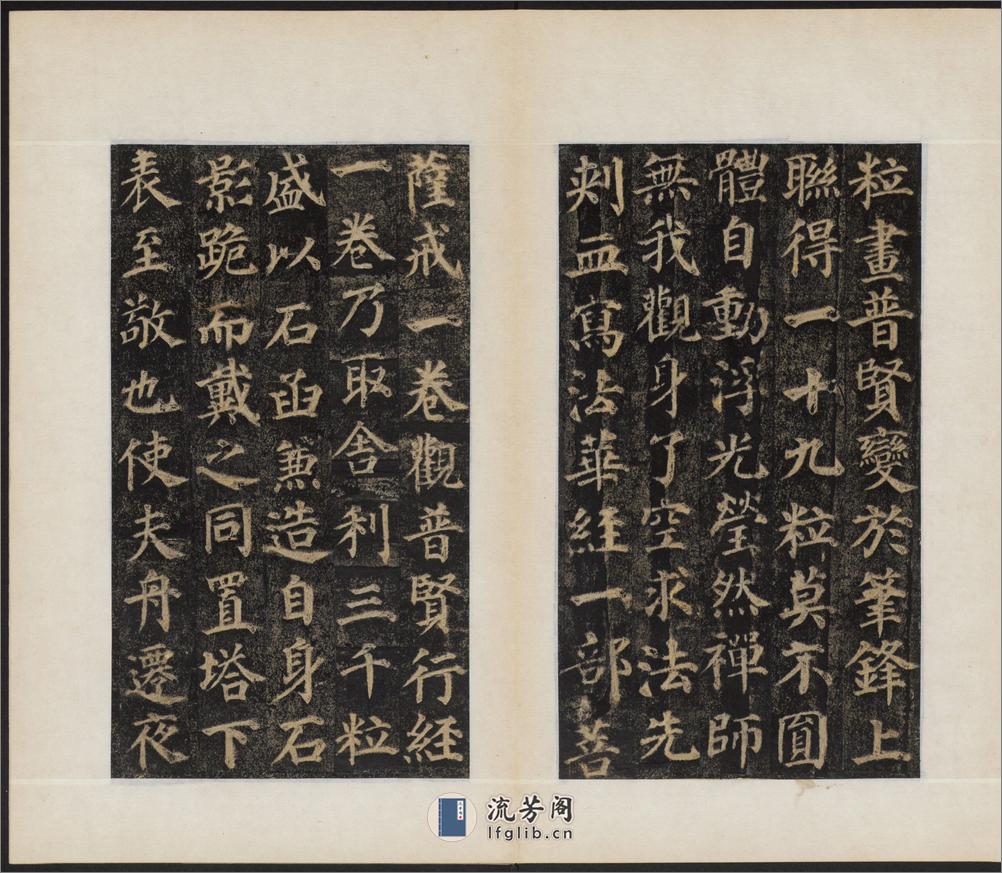 粒畫普賢變於筆鋒上
聯得一十九粒莫不圓
體自動浮光瑩然禪師
無我觀身了空求法先
刾血寫法華経一部菩
薩戒一卷觀普賢行経
一卷乃取舎利三千粒
盛以石函兼造自身石
影跪而戴之同置塔下
表至敬也使夫舟遷夜
流芳阁
lfglib.cn